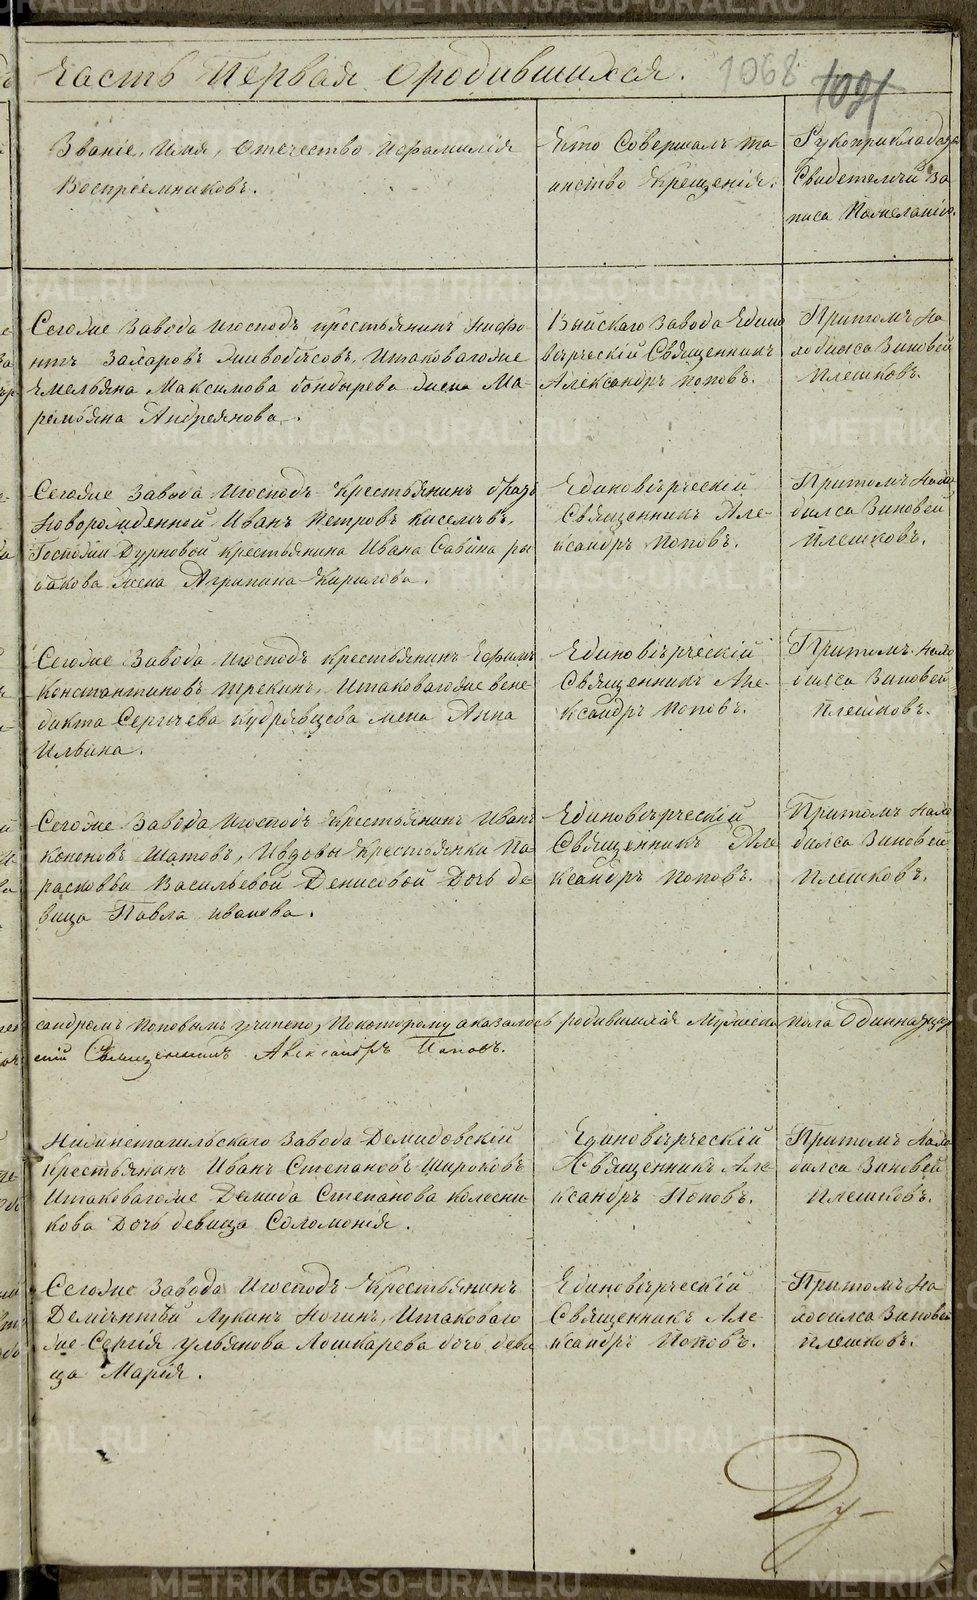 Часть Первая Ородившихся.
1068
Званіе, Имя, Отечество Ифамилія
Воспріемниковъ.
Кто Совершалъ та
инство Крещенія.
Рукоприкладство
Свидетелей За
писа Пожеланію.
Сегоже Завода Игосподъ крестьянинъ Нифо
нтъ Захаровъ Итаковагоже
Емельяна Максимова бондырева жена Ма
ремьяна Андреянова.
Выйскаго Завода Едино
вѣрческій Священникъ
Александръ Поповъ.
Притомъ На
ходился Зиновей
Плешковъ.
Сегоже Завода Игосподъ Крестьянинъ братъ
Новорожденной Иванъ Петровъ Киселевъ,
Госпожи Дурновой крестьянина Ивана Савина ры
бакова жена Агрипина Кирилова.
Единовѣрческій
Священникъ Але
ксандръ Поповъ.
Притомъ Нахо
дился Зиновей
Плешковъ.
Сегоже Завода Игосподъ крестьянинъ Ефимъ
Константиновъ трекинъ, Итаковагоже вене
дикта Сергѣева кудрявцева жена Анна
Ильина.
Единовѣрческій
Священникъ Але
ксандръ Поповъ.
Притомъ Нахо
дился Зиновей
Плешковъ.
Сегоже Завода Игосподъ Крестьянинъ Иванъ
Кононовъ Шатовъ, Ивдовы Крестьянки Па
расковьи Васильевой Денисовой Дочь де
вица Павла иванова.
Единовѣрческій
Священникъ Але
ксандръ Поповъ.
Притомъ Нахо
дился Зиновей
Плешковъ.
сандромъ Поповымъ учинено, Покоторому оказалось родившихся Мужеска пола Одинна
Священникъ Александръ Поповъ.
Нижнетагильскаго Завода Демидовскій
Крестьянинъ Иванъ Степановъ Широковъ
Итаковагоже Демида Степанова колесни
кова Дочь девица Соломонія.
Единовѣрческій
Священникъ Але
ксандръ Поповъ.
Притомъ Нахо
дился Зиновей
Плешковъ.
Сегоже Завода Игосподъ Крестьянинъ
Дементій Лукинъ Ногинъ, Итаковаго
же Сергія ульянова Лошкарева дочь деви
ца Марія.
Единовѣрческій
Священникъ Але
ксандръ Поповъ.
Притомъ На
ходился Зиновей
Плешковъ.
Ду-
METRIKI.GASO-URAL.RU